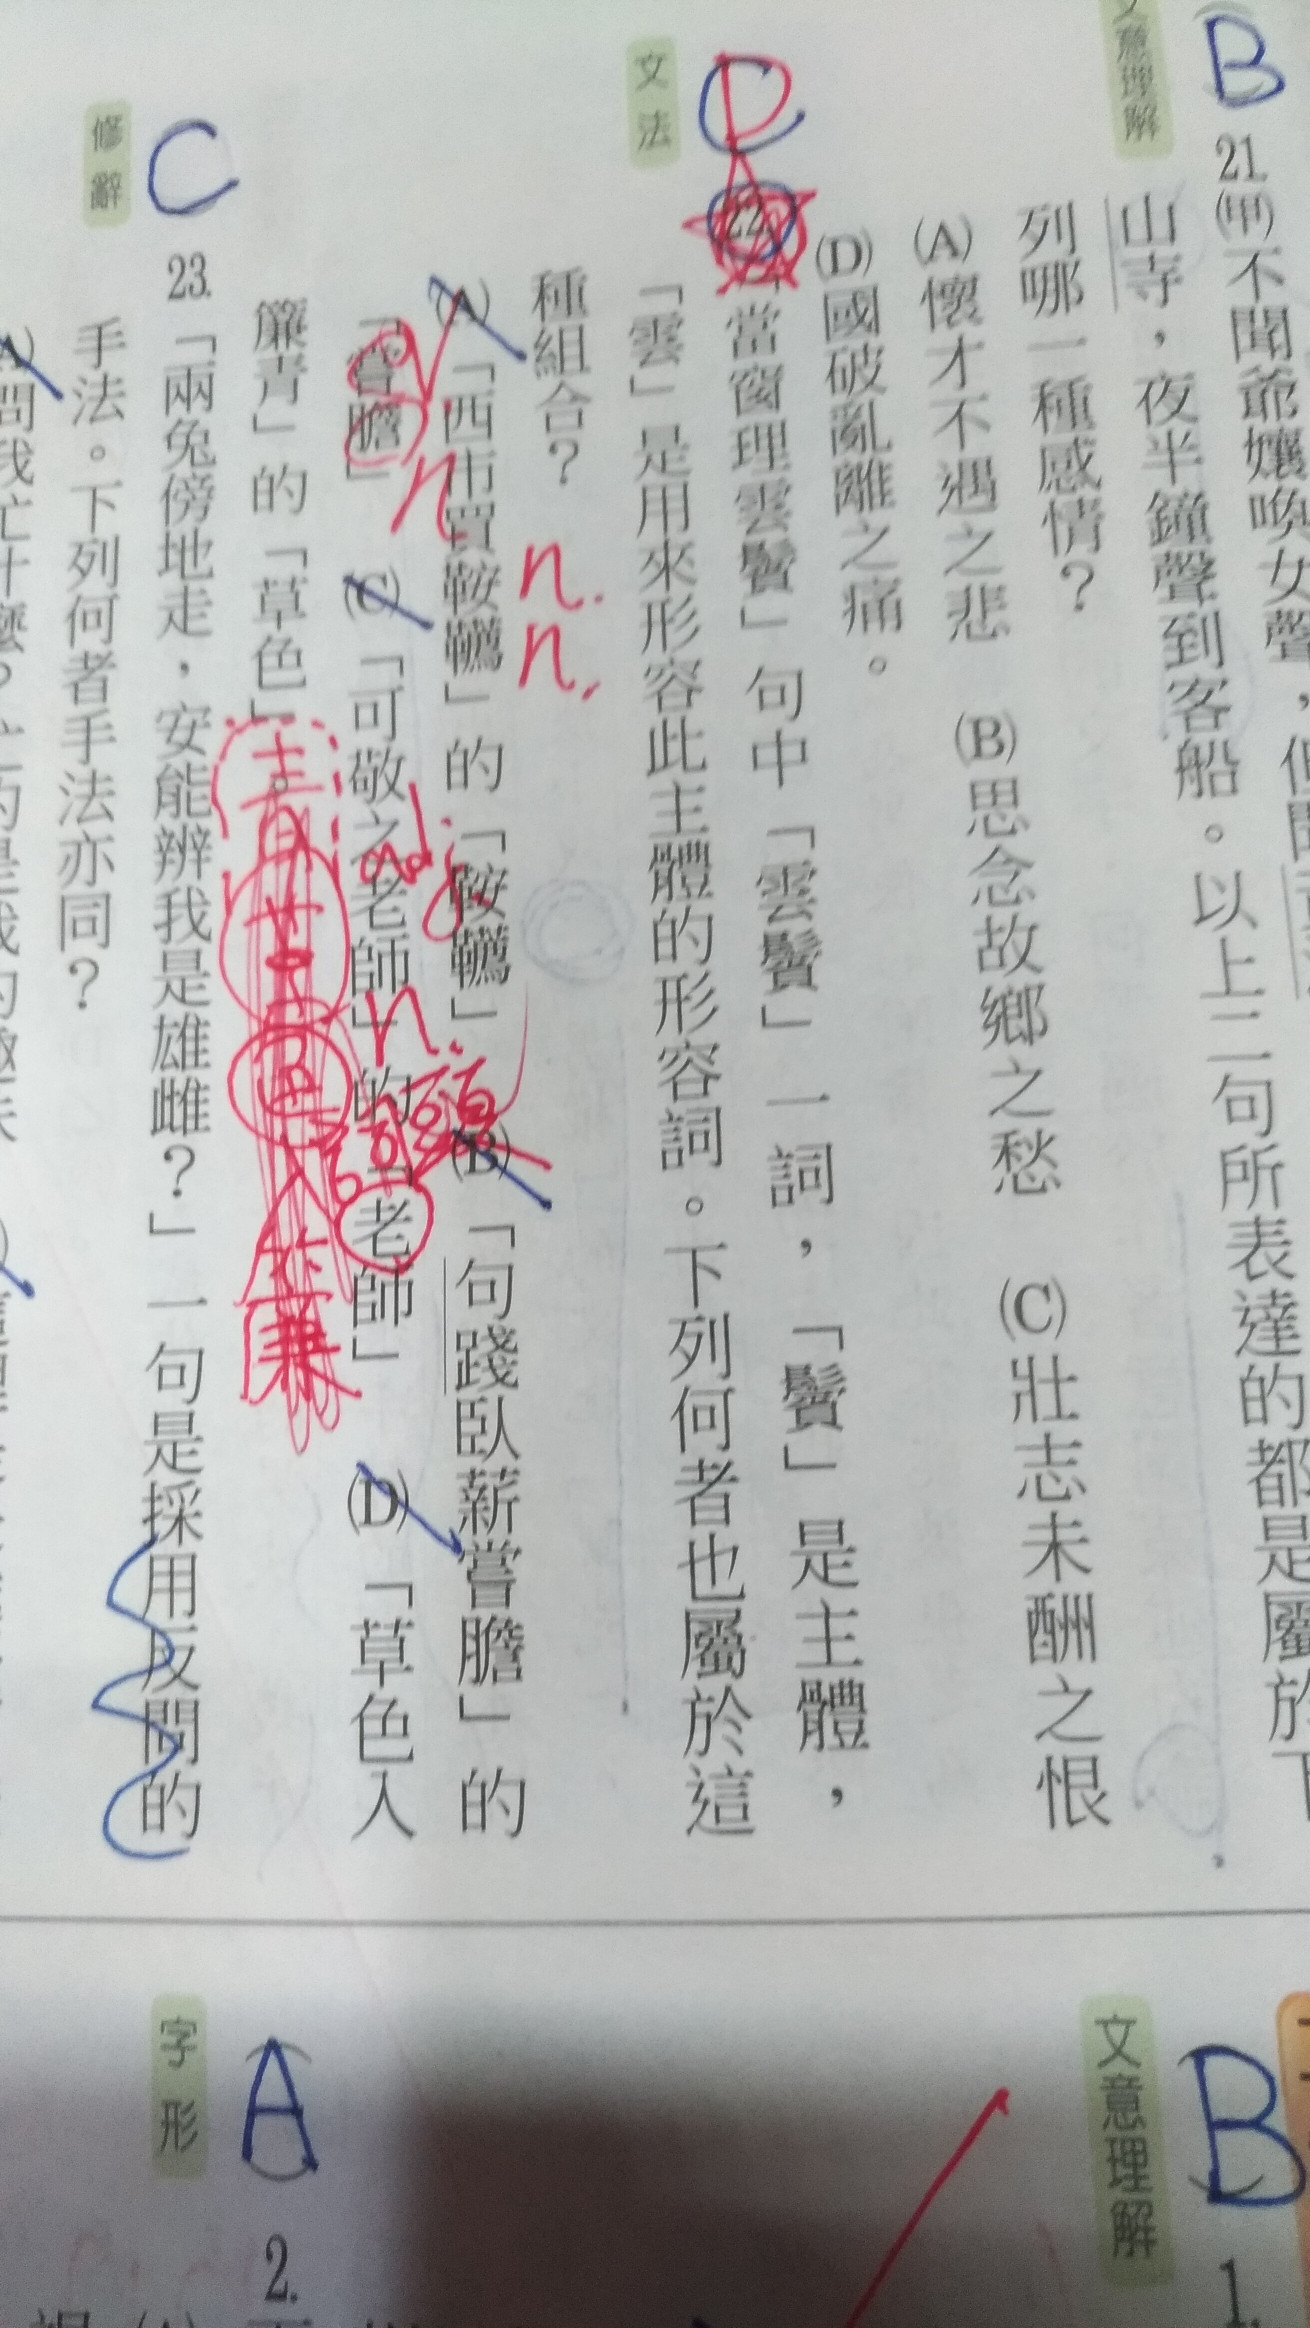 文意理解
B
21.(甲)不聞爺孃喚女聲，但聞
山寺，夜半鐘聲到客船。以上二句所表達的都是屬於下
列哪一種感情？
(A)懷才不遇之悲 (B)思念故鄉之愁 (C)壯志未酬之恨
(D)國破亂離之痛。
文法
D
22.「當窗理雲鬢」句中「雲鬢」一詞，「鬢」是主體，
「雲」是用來形容此主體的形容詞。下列何者也屬於這
種組合？
n.
n.
(A)「西市買鞍韉」的「鞍韉」 (B)「句踐臥薪嘗膽」的
v
n
adj.
「嘗膽」 (C)「可敬之老師」的「老師」 (D)「草色入
n.
詞頭
簾青」的「草色」。
青
草
色
入
簾
修辭
C
23.「兩兔傍地走，安能辨我是雄雌？」一句是採用反問的
手法。下列何者手法亦同？
(A)問我忙什麼？忙的是我的
文意理解
B
1.
字形
A
2.